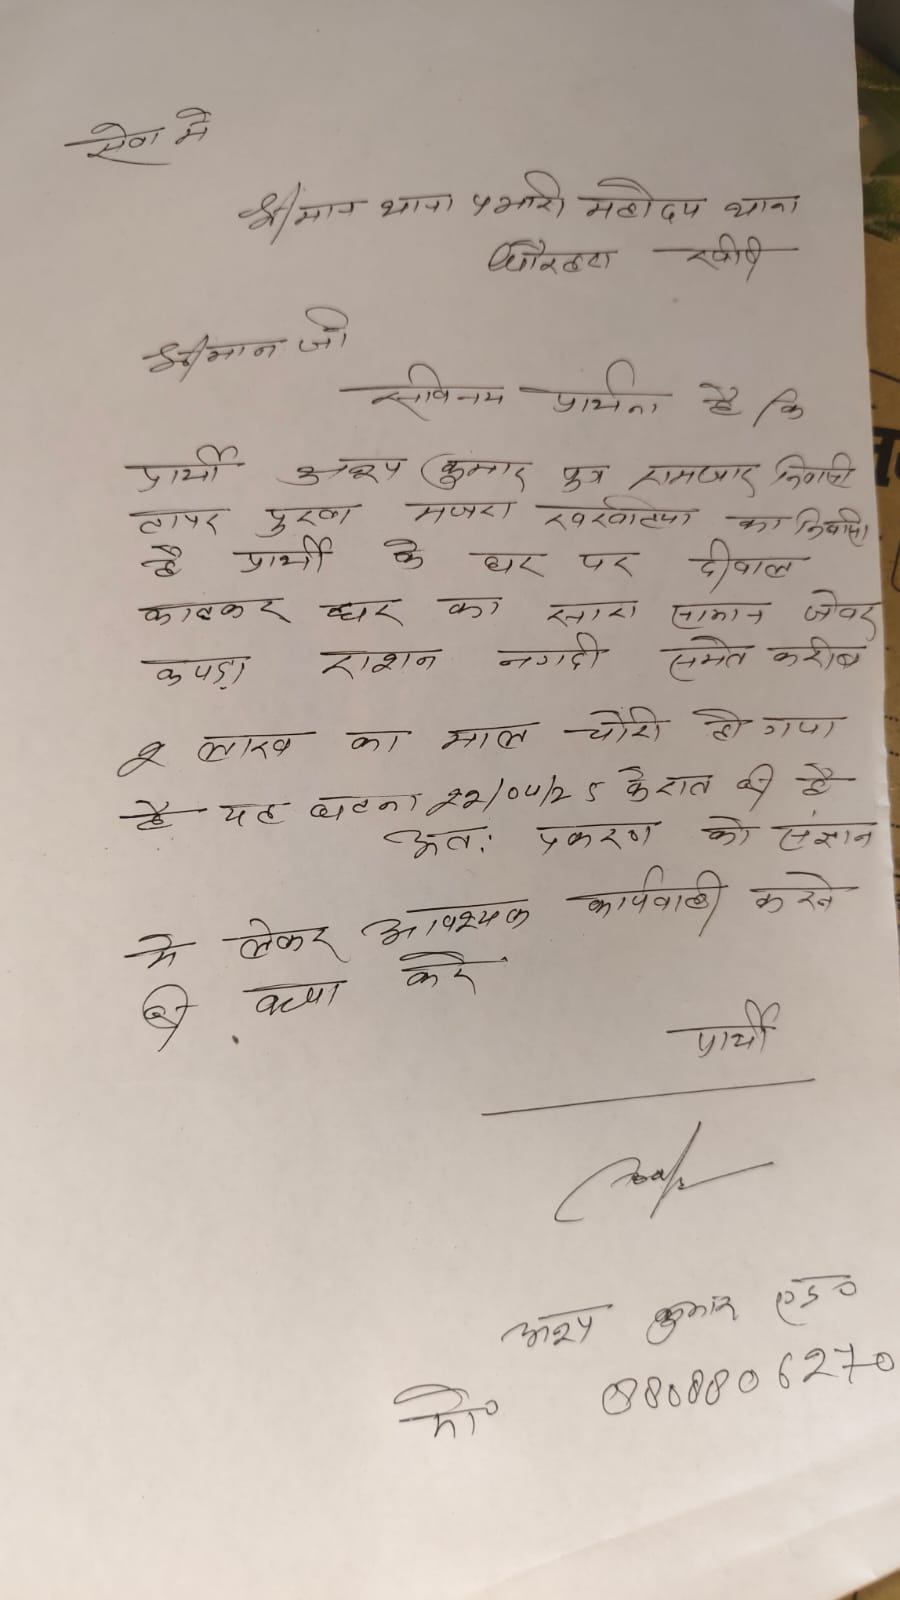 सेवा में
श्रीमान थाना प्रभारी महोदय थाना
धौरहरा खीरी
श्रीमान जी
सविनय प्रार्थना है कि
प्रार्थी कुमार पुत्र निवासी
पुरवा मजरा का निवासी
है प्रार्थी के घर पर दीवाल
काटकर घर का सारा सामान जेवर
कपड़ा राशन नगदी समेत करीब
2 लाख का माल चोरी हो गया
है यह घटना 22/04/25 के रात की है
अत: प्रकरण को संज्ञान
मे लेकर आवश्यक कार्यवाही करने
की कृपा करें
प्रार्थी
कुमार एड०
मो० 8808806270